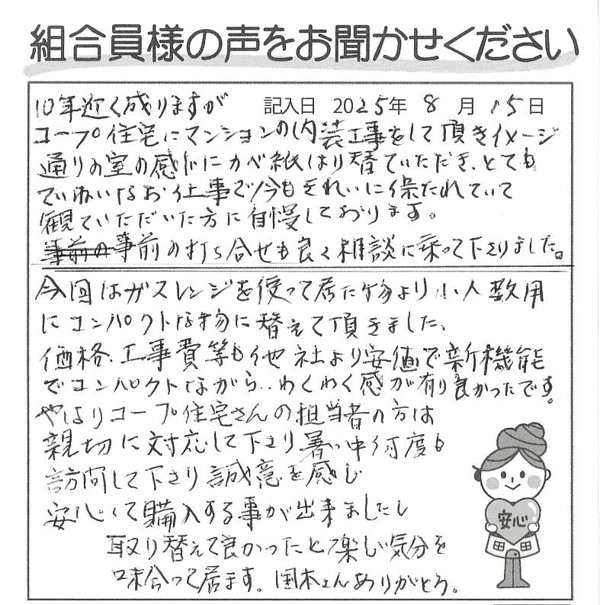 組合員様の声をお聞かせください
10年近く成りますが 記入日 2025年 8月 15日
コープ住宅にマンションの内装工事をして頂きイメージ
通りの室の感じにかべ紙はり替ていただき、とても
ていねいなお仕事で今もきれいに保たれていて
観ていただいた方に自慢しております。
事前の事前の打ち合せも良く相談に乗って下さりました。
今回はガスレンジを使って居た物より小人数用
にコンパクトな物に替えて頂きました、
価格、工事費等も他社より安値で新機能
でコンパクトながら‥わくわく感が有り良かったです。
やはりコープ住宅さんの担当者の方は
親切に対応して下さり暑い中何度も
訪問して下さり誠意を感じ
安心して購入する事が出来ましたし
取り替えて良かったと楽しい気分を
味合って居ます。国本さんありがとう。
安心